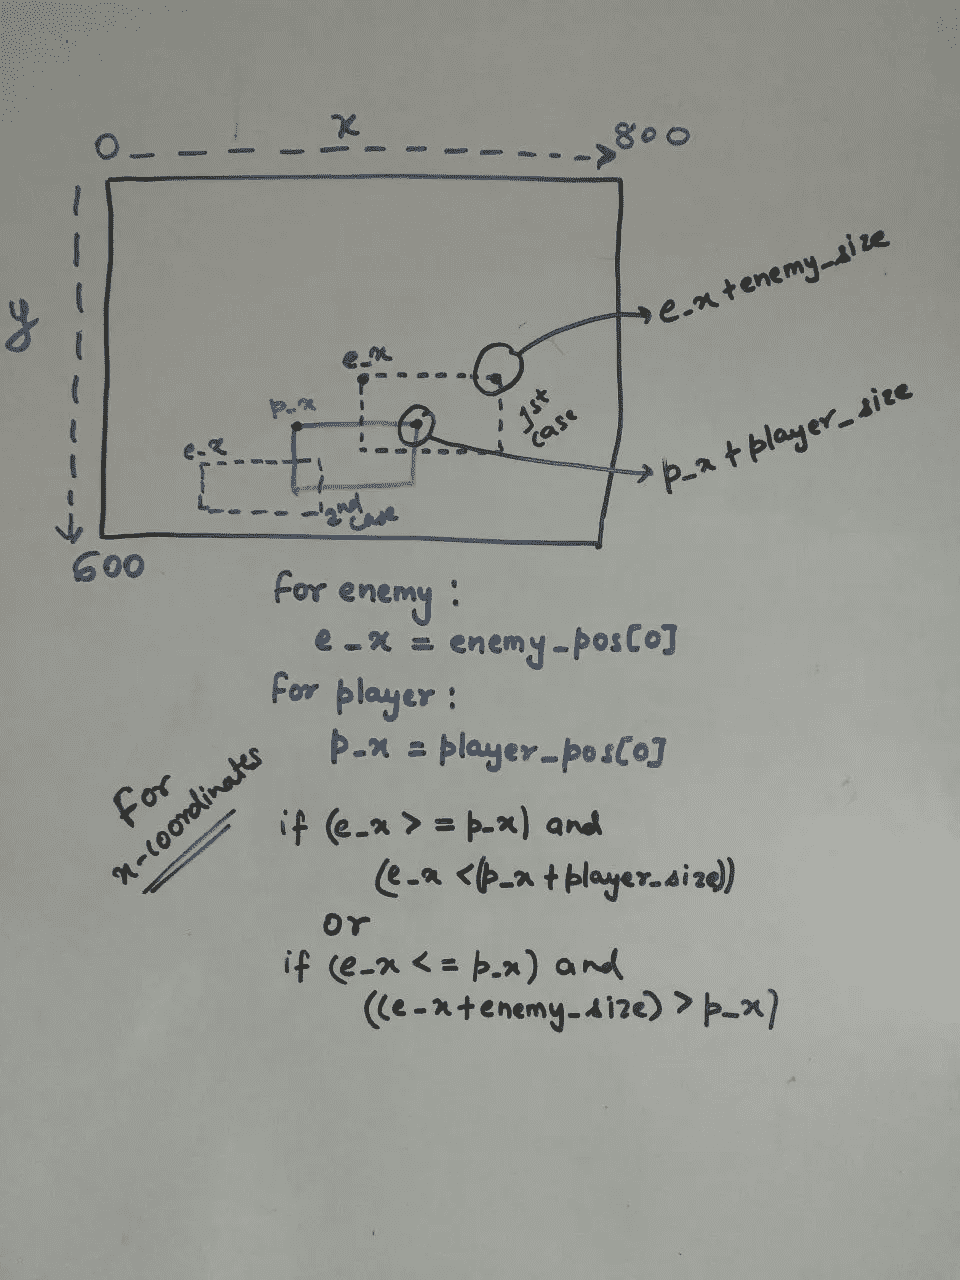 x
0
800
y
e_x+enemy_size
e_x
p_x
1st
case
p_x + player_size
e_x
2nd
case
600
for enemy :
e_x = enemy_pos[0]
for player :
p_x = player_pos[0]
For
x-coordinates
if (e_x >= p_x) and
(e_x <(p_x + player_size))
or
if (e_x <= p_x) and
((e_x+enemy_size) > p_x)